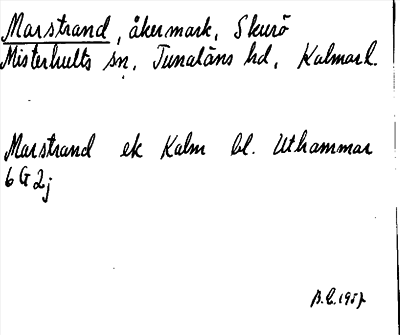 Marstrand, åkermark, Skurö
Misterhults sn, Tunaläns hd, Kalmarl.
Marstrand ek Kalm bl. Uthammar
6 G 2j
B.E. 1957